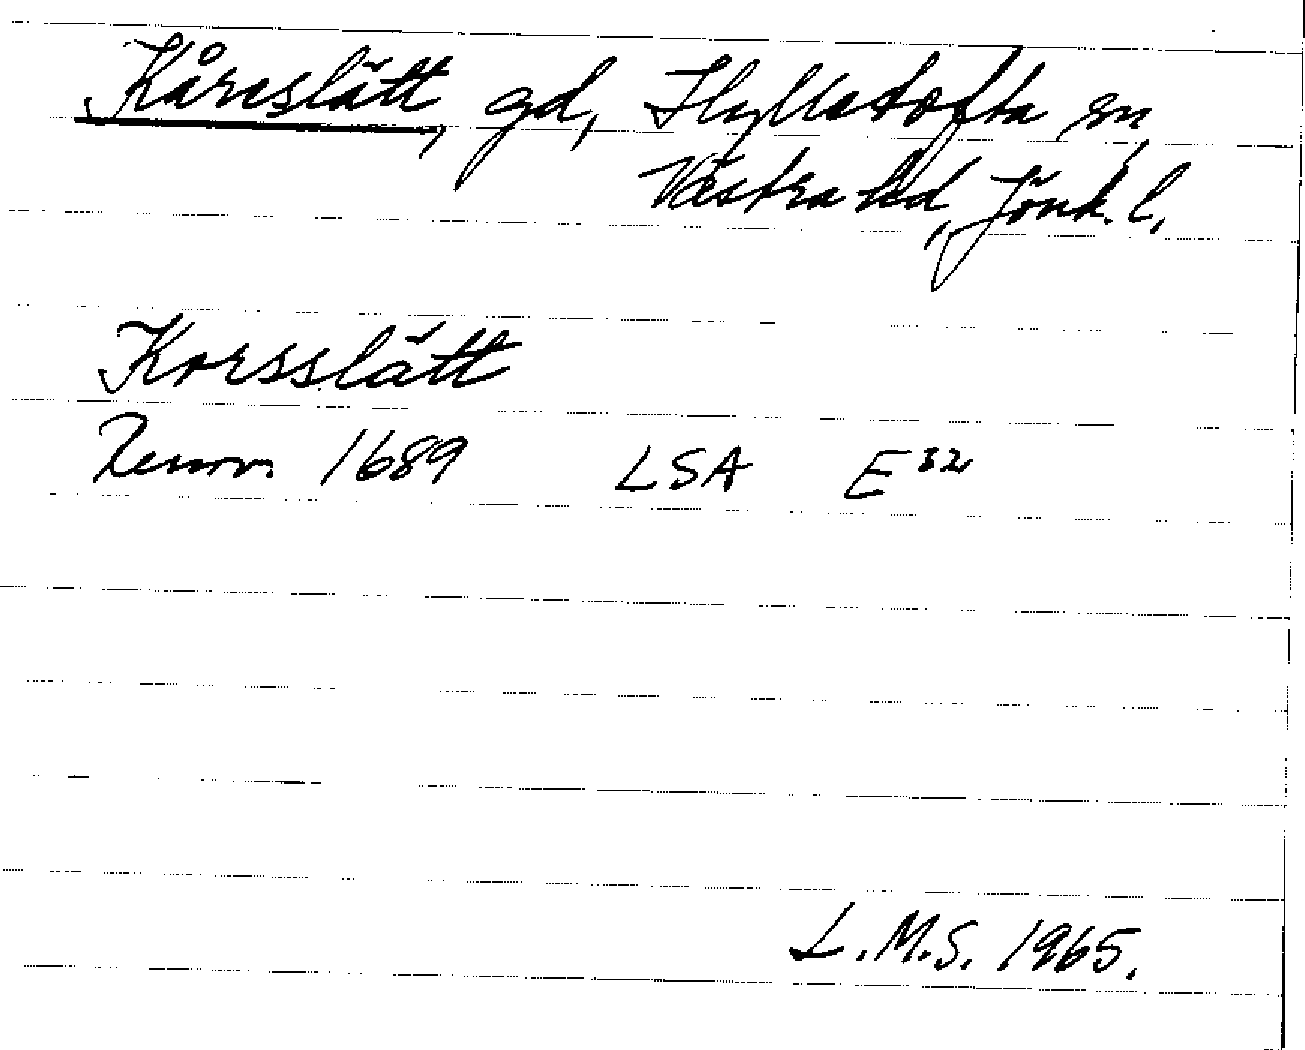 Kåreslätt, gd, Hylletofta sn,
Västra hd, Jönk. l.
Korsslätt
Renov. 1689 LSA E32
L.M.S. 1965.